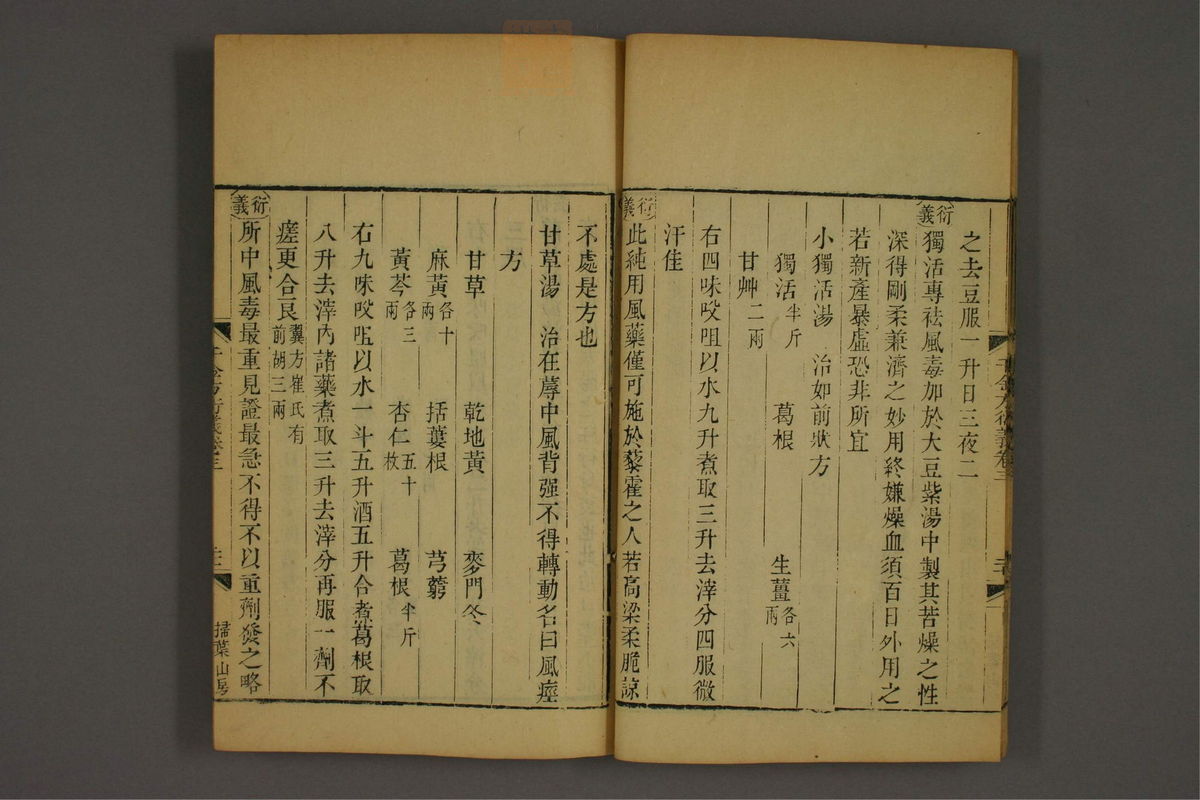 之去豆服一升日三夜二
衍義
獨活專祛風毒加於大豆紫湯中製其苦燥之性
深得剛柔兼濟之妙用終嫌燥血須百日外用之
若新產暴虛恐非所宜
小獨活湯 治如前狀方
獨活半斤 葛根 生薑各六兩
甘艸二兩
右四味㕮咀以水九升煮取三升去滓分四服微
汗佳
衍義
此純用風藥僅可施於藜藿之人若高梁柔脆諒
不處是方也
甘草湯 治在蓐中風背强不得轉動名曰風痙
方
甘草 乾地黃 麥門冬
麻黃各十兩 括蔞根 芎藭
黃芩各三兩 杏仁五十枚 葛根半斤
右九味㕮咀以水一斗五升酒五升合煮葛根取
八升去滓內諸藥煮取三升去滓分再服一劑不
瘥更合良翼方崔氏有前胡三兩
衍義
所中風毒最重見證最急不得不以重劑發之略
千金方衍義卷三
掃葉山房